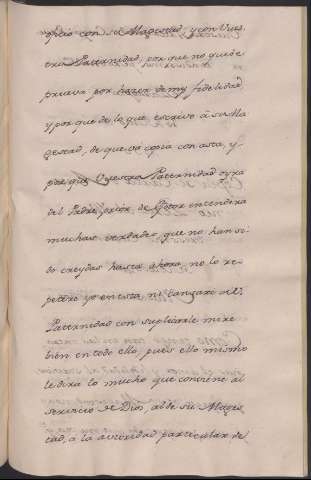 oficio con su Magestad, y con Vues
tra Paternidad, por que no quede
prueva por hazer de my fidelidad
y por que de lo que escrivo â su Ma
gestad, de que va copia con esta, y
por que Vuestra Paternidad oyra
del Padre prior de entendera
muchas verdades que no han si
do creydas hasta ahora, no lo re
petere yo en esta ni cansare a V.
Paternidad con suplicarle mire
bien en todo ello, pues ello mismo
le dira lo mucho que conviene al
servicio de Dios, al de su Mages
tad, a la autoridad particular de